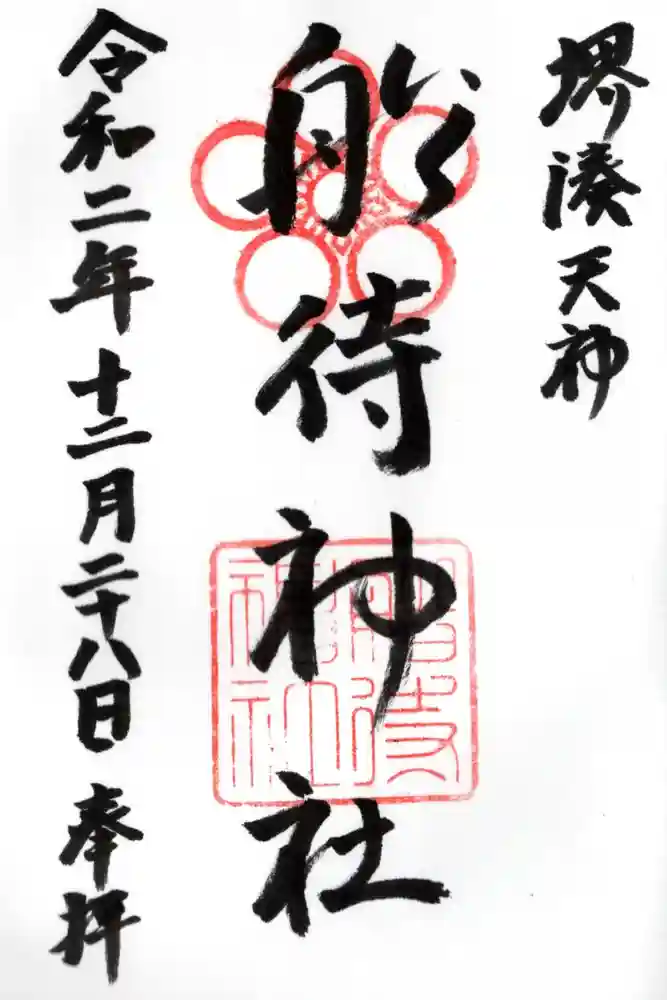 堺湊天神
船待神社
船待神社
令和二年十二月二十八日 奉拝